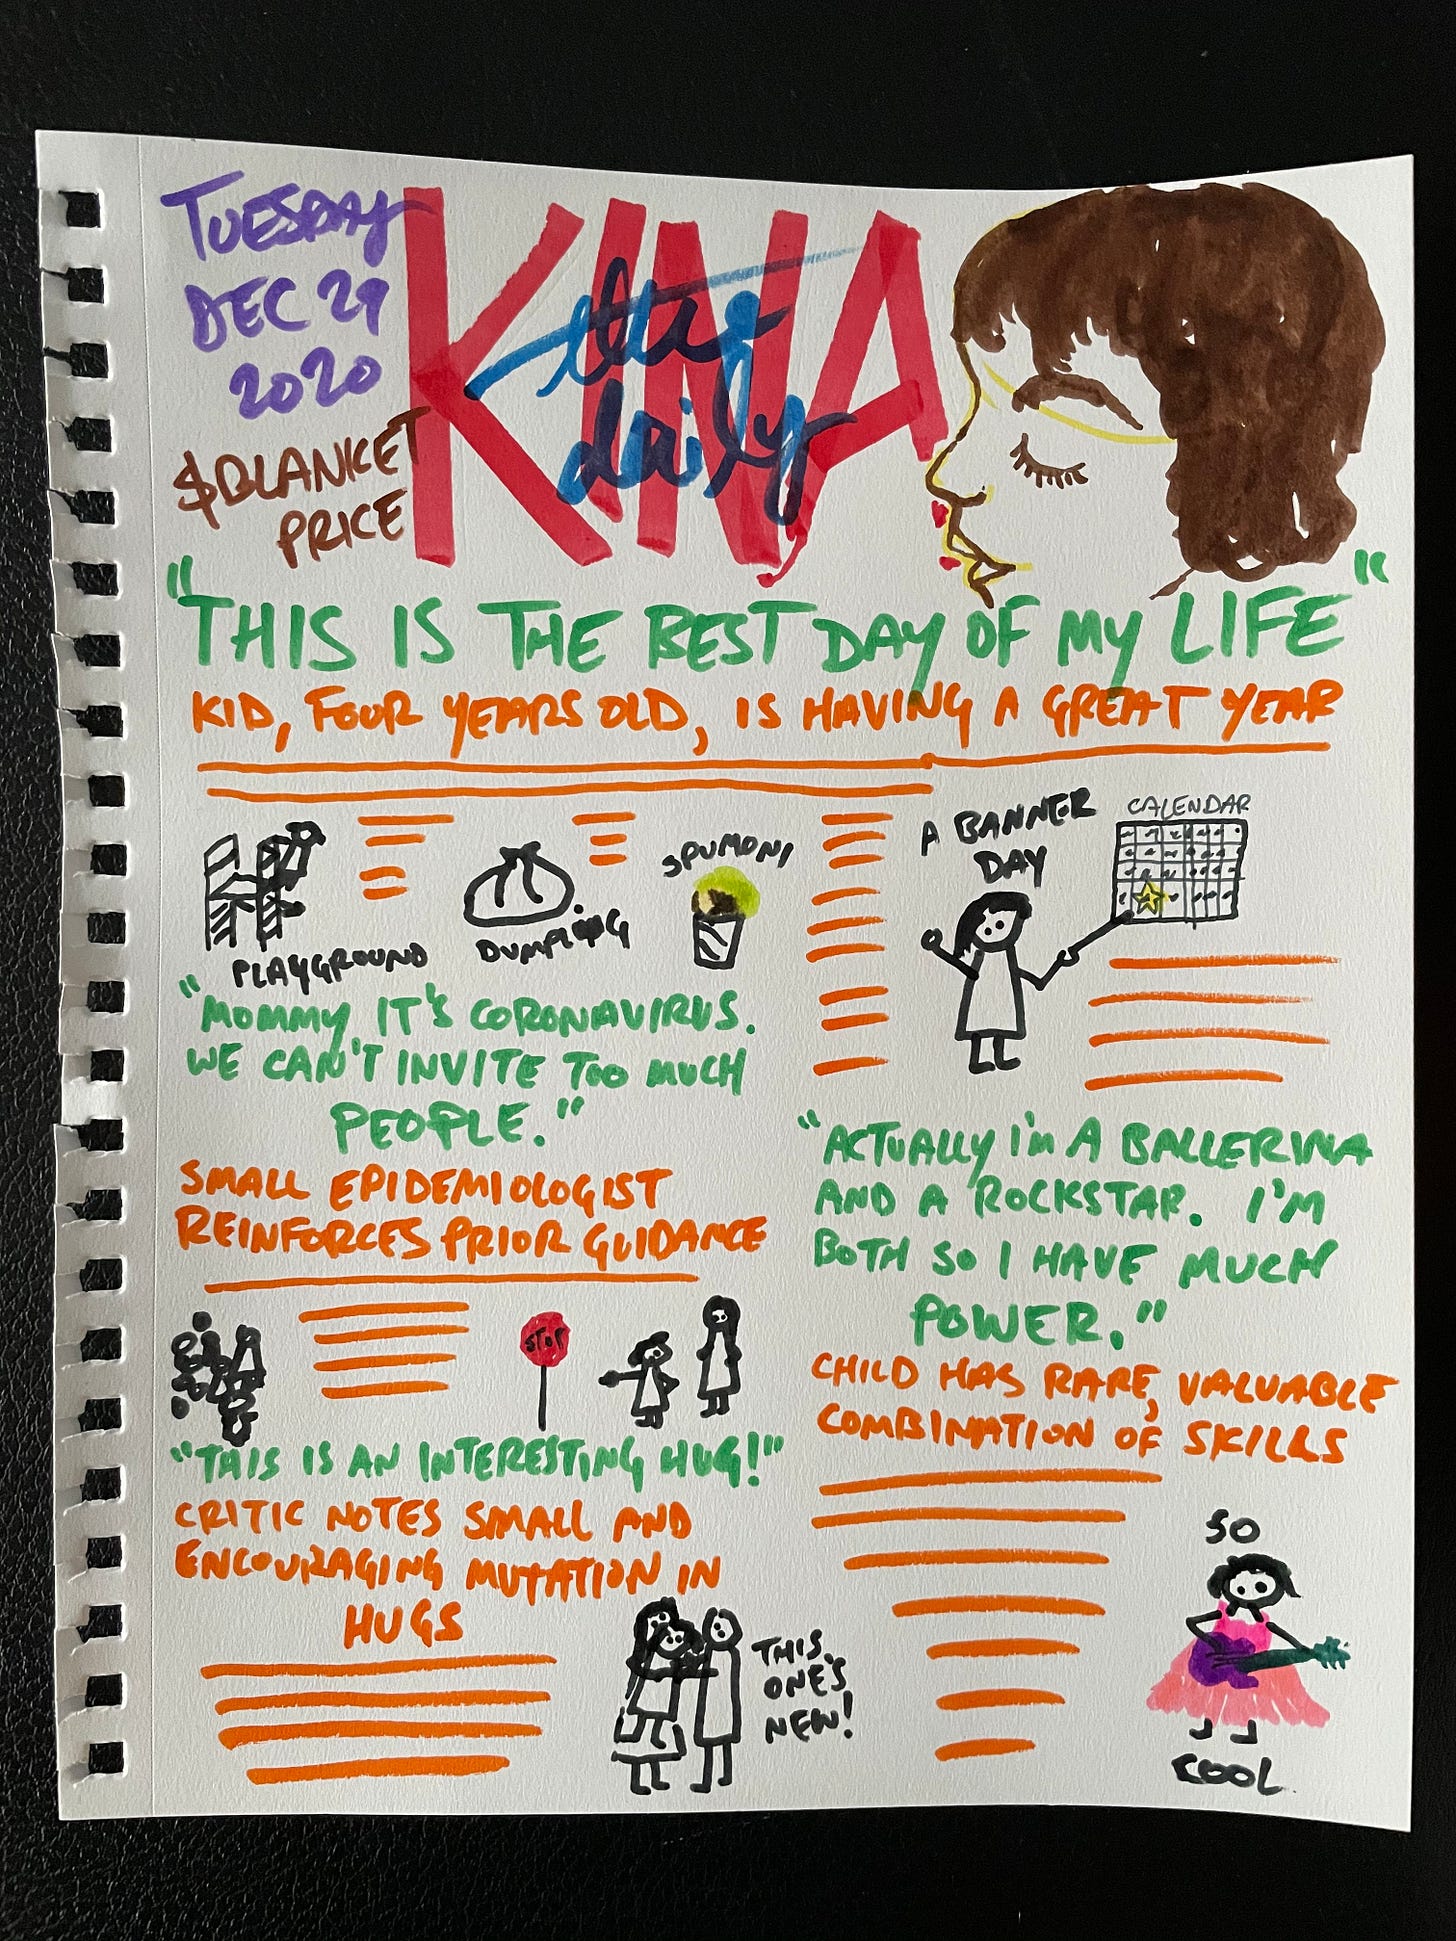 TUESDAY
DEC 29
2020
$BLANKET
PRICE
KINA
the
daily
"THIS IS THE BEST DAY OF MY LIFE"
KID, FOUR YEARS OLD, IS HAVING A GREAT YEAR
PLAYGROUND
DUMPLING
SPUMONI
A BANNER
DAY
CALENDAR
"MOMMY, IT'S CORONAVIRUS.
WE CAN'T INVITE TOO MUCH
PEOPLE."
SMALL EPIDEMIOLOGIST
REINFORCES PRIOR GUIDANCE
STOP
"THIS IS AN INTERESTING HUG!"
CRITIC NOTES SMALL AND
ENCOURAGING MUTATION IN
HUGS
THIS
ONE'S
NEW!
"ACTUALLY I'M A BALLERINA
AND A ROCKSTAR. I'M
BOTH SO I HAVE MUCH
POWER."
CHILD HAS RARE, VALUABLE
COMBINATION OF SKILLS
SO
COOL